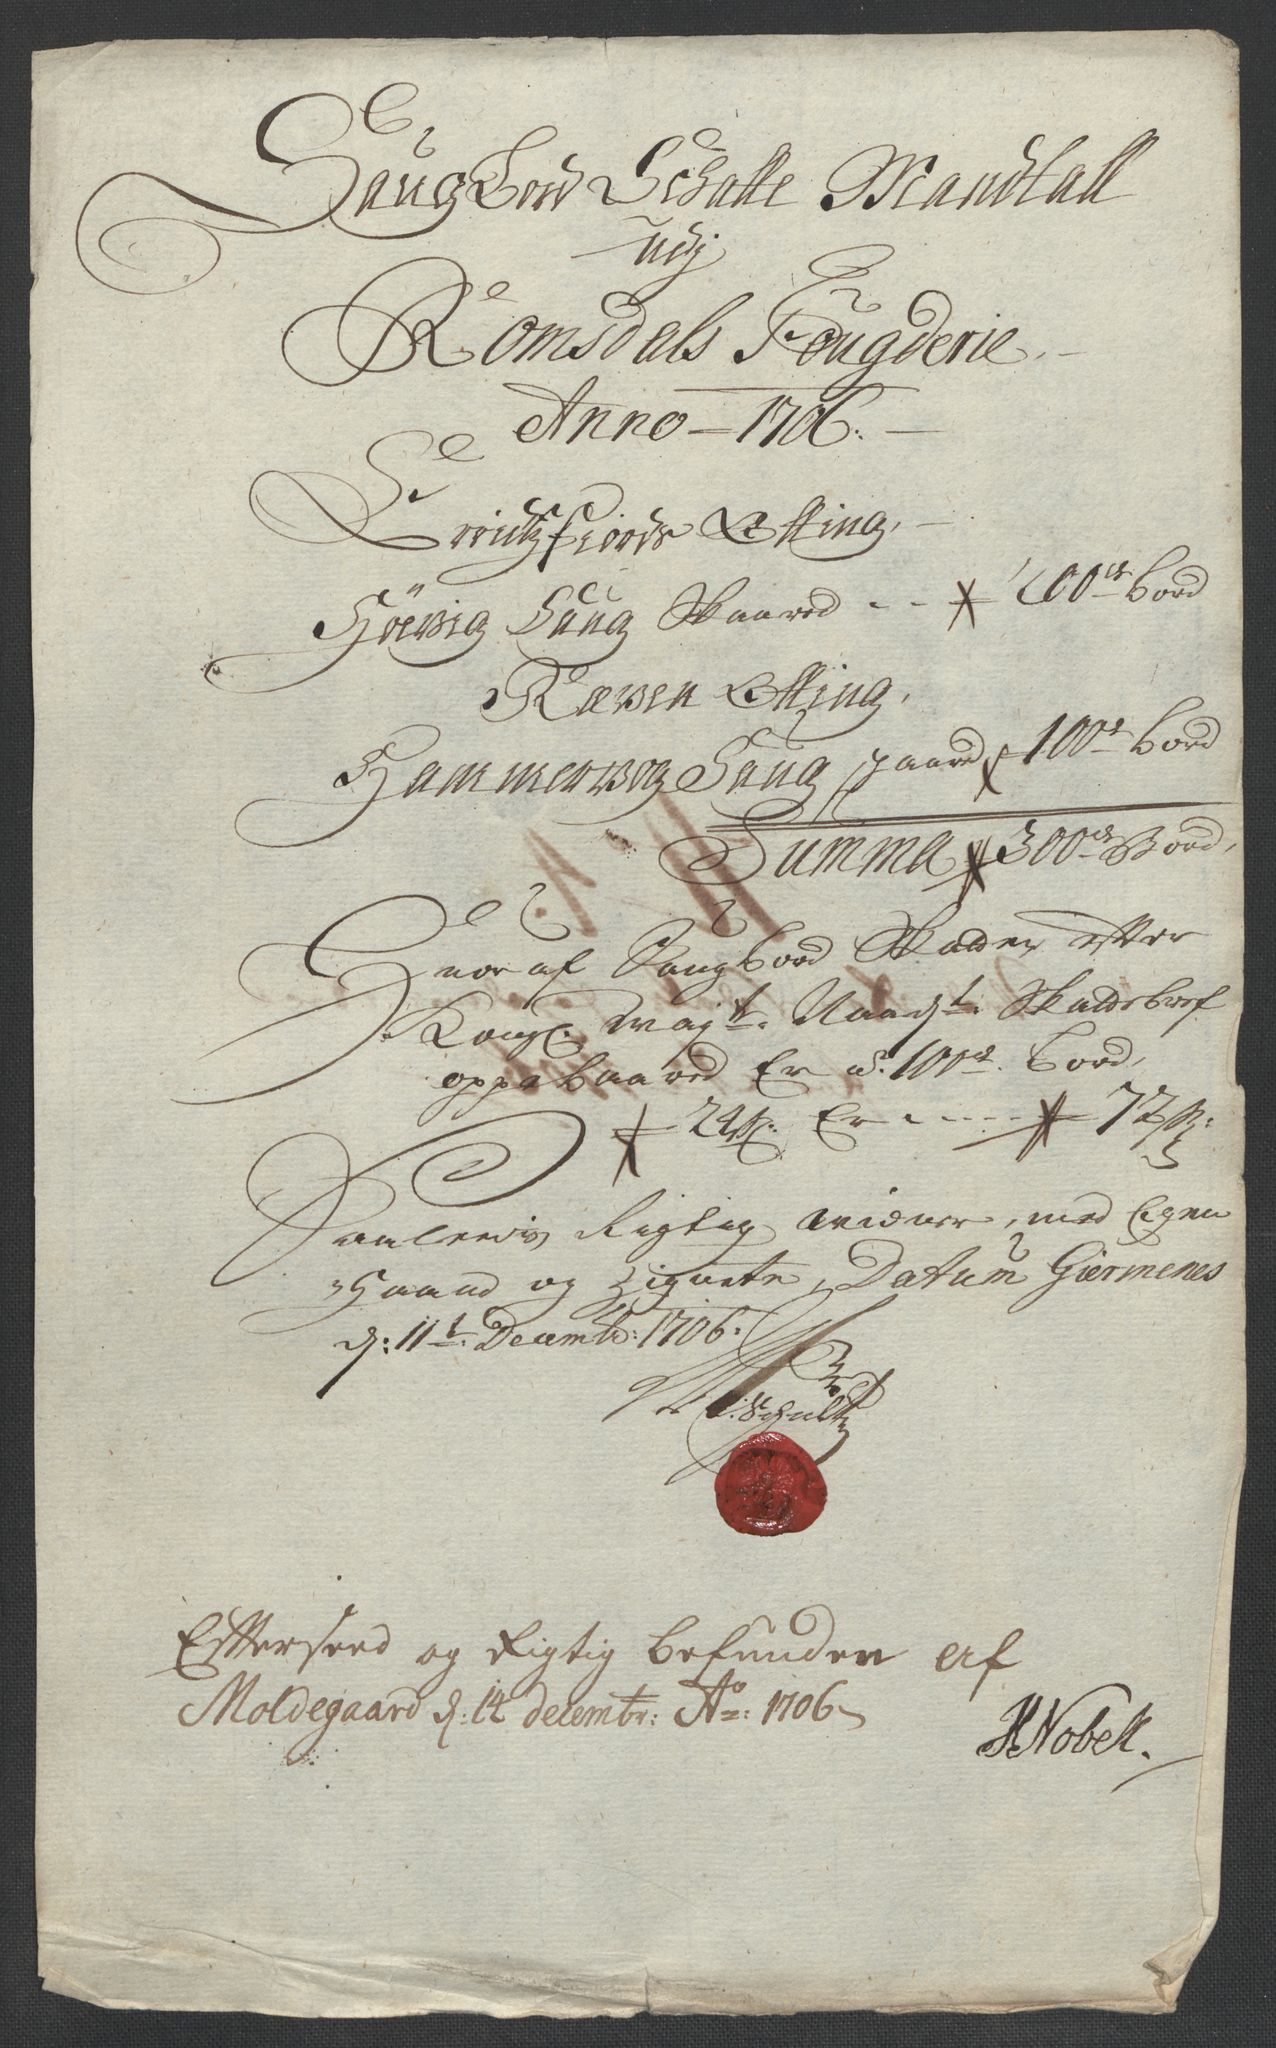 Saug Bord Schatte Mandtall
udj
Romsdals Fougderie.
Anno 1706.
Erichsfiords Otting.
Höevig Saug Skaared - - 200de Bord
Ræven Otting,
Hammervog Saug skaared 100de Bord
Summa 300de Bord,
Hvor af Saugbord Skatten effter
Kongl. Mayts. Naadst. Skattebref
oppebaared Er a. 100de. bord,
24 s. Er - - - - 72 s:
Saaledis Rigtig vidner, med Egen
Haand og Zignete, Datum Giermenes
d: 11t. Decembr: 1706.
Schultz
Efterseed og Rigtig befunden af
Moldegaard d: 14 decembr: Ao: 1706
HNobell.